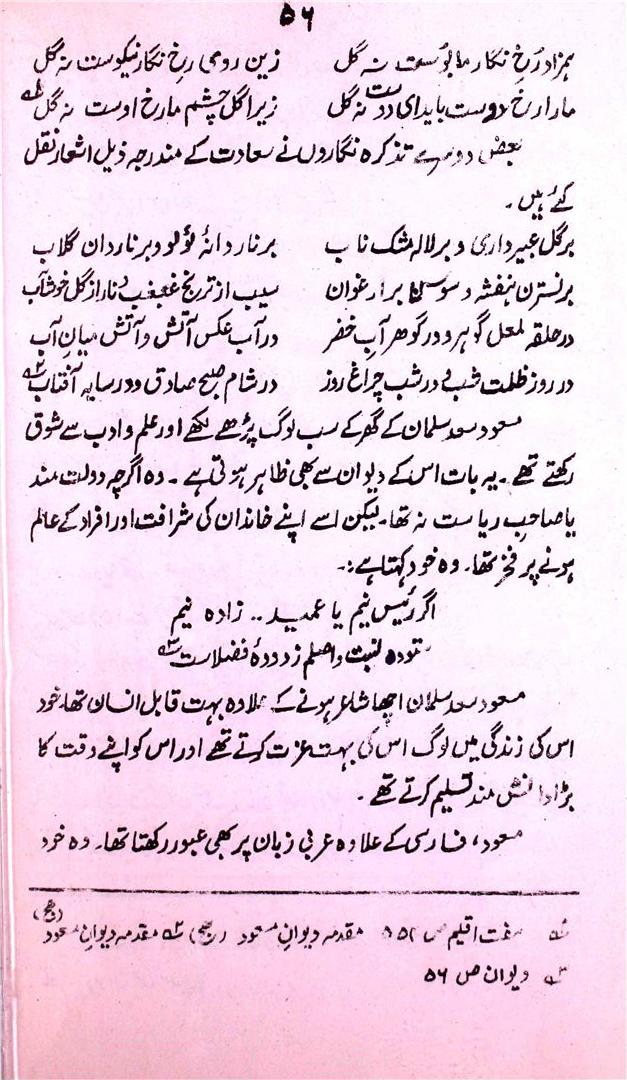 ۵۶
ہمزاد رخِ نگار ما بوست نہ گل زین روی رخ نگار نیکوست نہ گل
مارا رخ دوست باید ای دوست نہ گل زیرا گل چشم ما رخ اوست نہ گل ۱؎
بعض دوسرے تذکرہ نگاروں نے سعادت کے مندرجہ ذیل اشعار نقل
کئے ہیں۔
بر گل عبیر داری و بر لالہ مشک ناب بر نار دانۂ لؤلؤ و بر ناردان گلاب
بر نسترن بنفشہ و سوسن بر ارغوان سیب از ترنج غبغب و نار از گل خوشاب
در حلقہ لعل گوہر و در گوھر آبِ خضر در آب عکس آتش و آتش میانِ آب
در روز ظلمت شب و در شب چراغ روز در شام صبح صادق و در سایہ آفتاب ۲؎
مسعود سعد سلمان کے گھر کے سب لوگ پڑھے لکھے اور علم و ادب سے شوق
رکھتے تھے۔ یہ بات اس کے دیوان سے بھی ظاہر ہوتی ہے۔ وہ اگرچہ دولت مند
یا صاحبِ ریاست نہ تھا۔ لیکن اسے اپنے خاندان کی شرافت اور افراد کے عالم
ہونے پر فخر تھا۔ وہ خود کہتا ہے:۔
اگر رئیس نیم یا عمید .. زادہ نیم
ستودہ نسبت و اصلم ز دودۂ فضلاست ۳؎
مسعود سعد سلمان اچھا شاعر ہونے کے علاوہ بہت قابل انسان تھا۔ خود
اس کی زندگی میں لوگ اس کی بہت عزت کرتے تھے اور اس کو اپنے وقت کا
بڑا دانش مند تسلیم کرتے تھے۔
مسعود، فارسی کے علاوہ عربی زبان پر بھی عبور رکھتا تھا۔ وہ خود
۱؎ ہفت اقلیم ص مقدمہ دیوانِ مسعود ۲؎ مقدمہ دیوانِ مسعود
۳؎ دیوان ص ۵۶